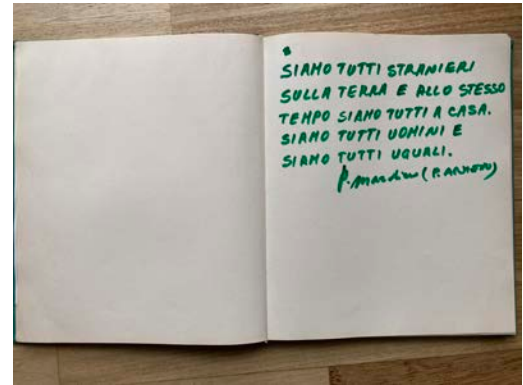 SIAMO TUTTI STRANIERI
SULLA TERRA E ALLO STESSO
TEMPO SIAMO TUTTI A CASA.
SIAMO TUTTI UOMINI E
SIAMO TUTTI UGUALI.